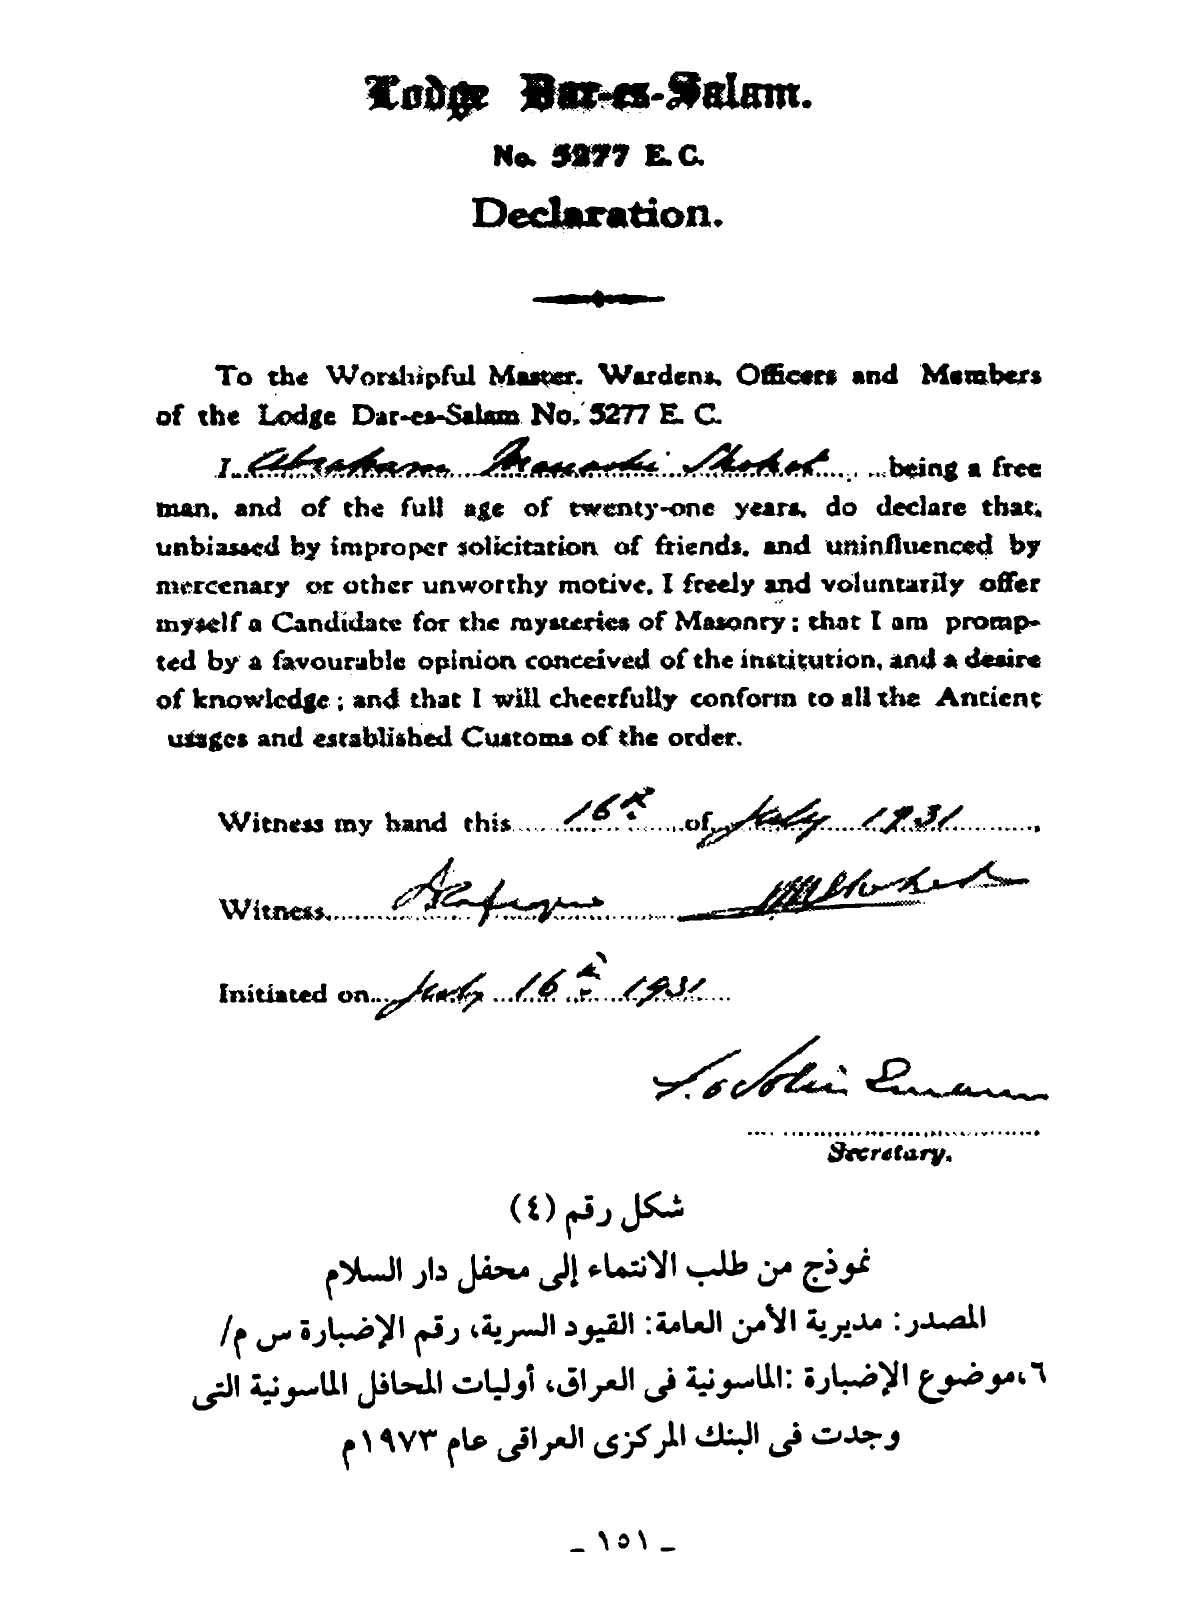 Lodge Dar-es-Salam.
No. 5277 E. C.
Declaration.
To the Worshipful Master, Wardens, Officers and Members
of the Lodge Dar-es-Salam No. 5277 E. C.
I Abraham Shohet being a free
man, and of the full age of twenty-one years, do declare that,
unbiassed by improper solicitation of friends, and uninfluenced by
mercenary or other unworthy motive, I freely and voluntarily offer
myself a Candidate for the mysteries of Masonry; that I am promp-
ted by a favourable opinion conceived of the institution, and a desire
of knowledge; and that I will cheerfully conform to all the Antient
usages and established Customs of the order.
Witness my hand this 16th of July 1931
Witness
Initiated on July 16th 1931
Secretary.
شكل رقم (٤)
نموذج من طلب الانتماء إلى محفل دار السلام
المصدر: مديرية الأمن العامة: القيود السرية، رقم الإضبارة س م/
٦،موضوع الإضبارة :الماسونية فى العراق، أوليات المحافل الماسونية التى
وجدت فى البنك المركزى العراقى عام ١٩٧٣م
_ ١٥١ _